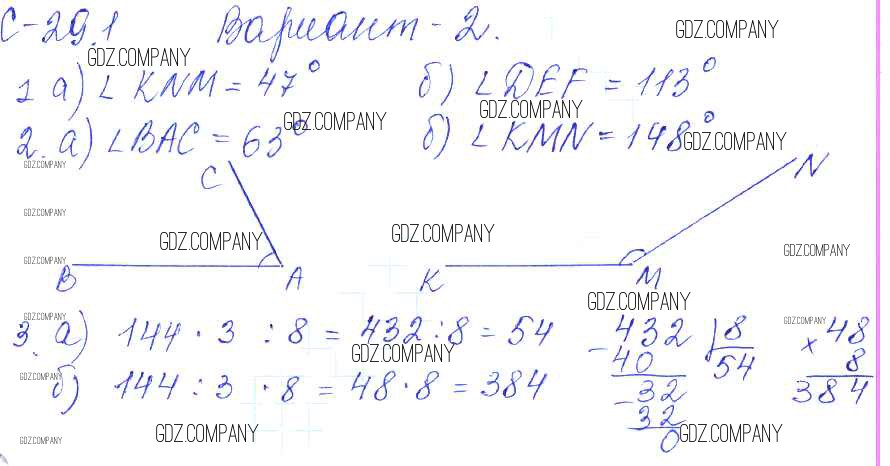 С-29.1 Вариант - 2.
GDZ.COMPANY
GDZ.COMPANY
1 а) ∠KNM = 47° б) ∠DEF = 113°
GDZ.COMPANY GDZ.COMPANY
2. а) ∠BAC = 63° б) ∠KMN = 148°
GDZ.COMPANY
GDZ.COMPANY
C N
GDZ.COMPANY
GDZ.COMPANY GDZ.COMPANY GDZ.COMPANY
GDZ.COMPANY
B A K M
GDZ.COMPANY
GDZ.COMPANY GDZ.COMPANY
3. а) 144 · 3 : 8 = 432 : 8 = 54
GDZ.COMPANY
GDZ.COMPANY
б) 144 : 3 · 8 = 48 · 8 = 384
432 8
- 40 54
- 32
32
0
× 48
8
384
GDZ.COMPANY GDZ.COMPANY GDZ.COMPANY